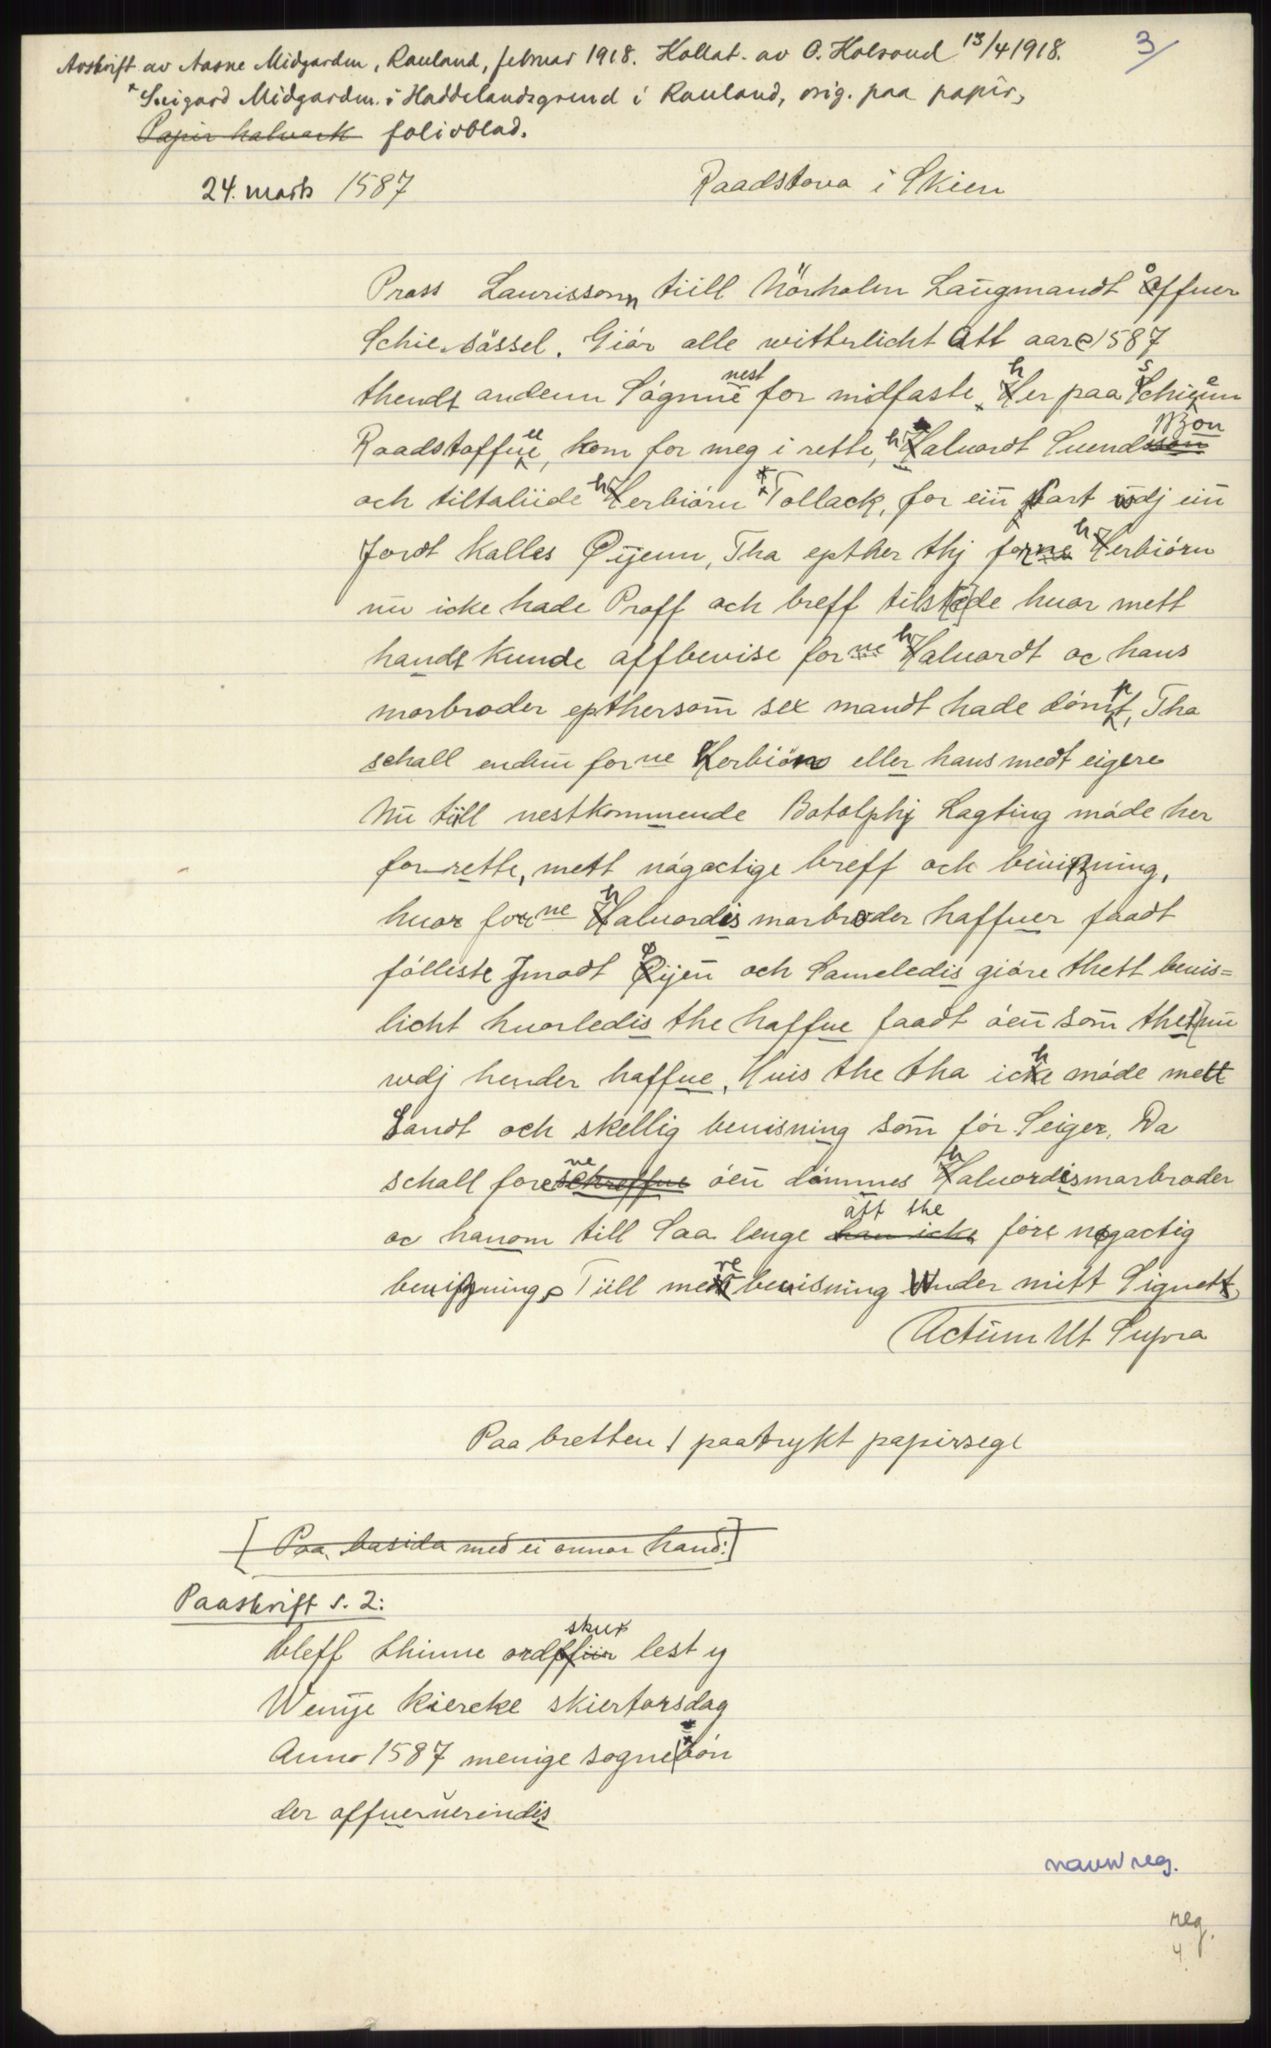 Avskrift av Aasne Midgarden, Rauland, februar 1918. Kollat. av O. Kolsrud 13/4 1918.
3/
Snigard Midgarden i Haddelandsgrend i Rauland, orig. paa papir,
Papir halvark folioblad.
24. mars 1587
Raadstova i Skien
Prass Laurissonn tiill Nörholm Laugmandt åffuer
Schiensössel. Giör alle witterlicht Att aare 1587
thendt andenn Sögnne nest for midfaste, her paa Schieenn
Raadstoffuee, kom for meg i rette, haluardt Suendßon
och tiltaliide herbiörn Tollack, for ein part wdj ein
Jordt kalles Øijenn, Tha epther thj forne herbiörn
nu icke hade Proff och breff tilstede huar mett
handt kunde affbevise forne haluardt oc hans
morbroder epthersom sex mandt hade dömpt, Tha
schall endnu forne Herbiörn eller hans medt eigere
Nu tiill nestkommende Botolphj Lagting möde her
for rette, mett nögactige breff och beuißning,
huor forne haluordis morbroder haffuer faadt
fölliste Jmodt Øijen och Sameledis giöre thett beuis=
licht huorledis the haffue faadt öen som the nu
wdj hender haffue, Huis the tha iche möde mett
Sandt och skellig beuisning som för Seiger, Da
schall forne öen dömmes haluordismorbroder
oc hanom till Saa lenge att the före nogactig
beuißning, Tiill mere beuisning Wnder mitt Signett,
Actum Ut Supra
Paa bretten 1 paatrykt papirsegl
[Paa basida med ei annor hand:]
Paaskrift s. 2:
bleff thinne ordskur lest y
Wenije kiercke skiertorsdag
Anno 1587 menige sogne bön
der offueruerindis
navnreg.
reg.
4